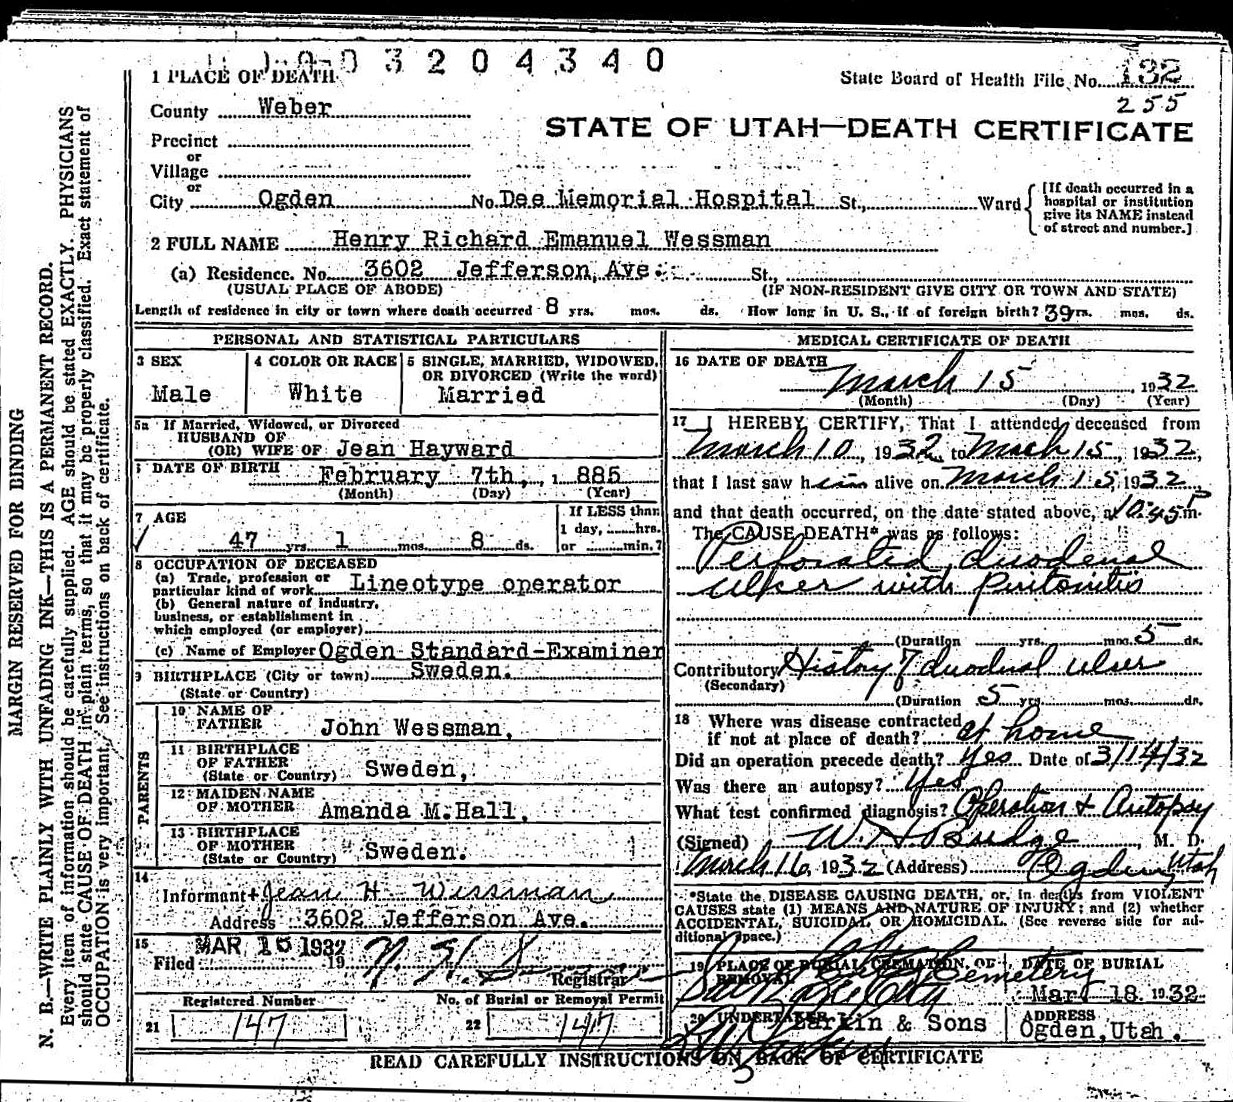 0 3 2 0 4 3 4 0
1 PLACE OF DEATH
State Board of Health File No. 132
255
County Weber
STATE OF UTAH—DEATH CERTIFICATE
Precinct
or
Village
or
City Ogden No. Dee Memorial Hospital St., Ward
[If death occurred in a hospital or institution give its NAME instead of street and number.]
2 FULL NAME Henry Richard Emanuel Wessman
(a) Residence. No. 3602 Jefferson Ave. St.,
(USUAL PLACE OF ABODE) (IF NON-RESIDENT GIVE CITY OR TOWN AND STATE)
Length of residence in city or town where death occurred 8 yrs. mos. ds. How long in U. S., if of foreign birth? 39 yrs. mos. ds.
PERSONAL AND STATISTICAL PARTICULARS
3 SEX
Male
4 COLOR OR RACE
White
5 SINGLE, MARRIED, WIDOWED, OR DIVORCED (Write the word)
Married
5a If Married, Widowed, or Divorced
HUSBAND OF
(OR) WIFE OF Jean Hayward
DATE OF BIRTH February 7th, 1 885
(Month) (Day) (Year)
7 AGE
47 yrs. 1 mos. 8 ds.
If LESS than
1 day, hrs.
or min.?
8 OCCUPATION OF DECEASED
(a) Trade, profession or
particular kind of work Lineotype operator
(b) General nature of industry,
business, or establishment in
which employed (or employer)
(c) Name of Employer Ogden Standard-Examiner
9 BIRTHPLACE (City or town) Sweden.
(State or Country)
PARENTS
10 NAME OF
FATHER John Wessman,
11 BIRTHPLACE
OF FATHER
(State or Country) Sweden,
12 MAIDEN NAME
OF MOTHER Amanda M. Hall,
13 BIRTHPLACE
OF MOTHER
(State or Country) Sweden.
14
Informant Jean H. Wessman
Address 3602 Jefferson Ave.
15 MAR 16 1932
Filed 19
Registrar
Registered Number
21 147
No. of Burial or Removal Permit
22 147
MEDICAL CERTIFICATE OF DEATH
16 DATE OF DEATH
March 15, 1932
(Month) (Day) (Year)
17 I HEREBY CERTIFY, That I attended deceased from
March 10, 1932, to March 15, 1932,
that I last saw him alive on March 15, 1932
and that death occurred, on the date stated above, at 10:45 P m.
The CAUSE DEATH* was as follows:
Perforated duodenal
ulker with peritonitis
(Duration yrs. mos. 5 ds.
Contributory History of duodenal ulser
(Secondary)
(Duration 5 yrs. mos. ds.
18 Where was disease contracted
if not at place of death? at home
Did an operation precede death? Yes Date of 3/14/32
Was there an autopsy? Yes
What test confirmed diagnosis? Operation & Autopsy
(Signed) W. H. Budge, M. D.
March 16 1932 (Address) Ogden, Utah
*State the DISEASE CAUSING DEATH, or, in deaths from VIOLENT
CAUSES state (1) MEANS AND NATURE OF INJURY; and (2) whether
ACCIDENTAL, SUICIDAL OR HOMICIDAL. (See reverse side for ad-
ditional space.)
19 PLACE OF BURIAL, CREMATION, OR
REMOVAL
City Cemetery
Salt Lake City
DATE OF BURIAL
Mar. 18 1932
20 UNDERTAKER Larkin & Sons
ADDRESS
Ogden, Utah.
READ CAREFULLY INSTRUCTIONS ON BACK OF CERTIFICATE
MARGIN RESERVED FOR BINDING
N. B.—WRITE PLAINLY WITH UNFADING INK—THIS IS A PERMANENT RECORD.
Every item of information should be carefully supplied. AGE should be stated EXACTLY. PHYSICIANS
should state CAUSE OF DEATH in plain terms, so that it may be properly classified. Exact statement of
OCCUPATION is very important. See instructions on back of certificate.